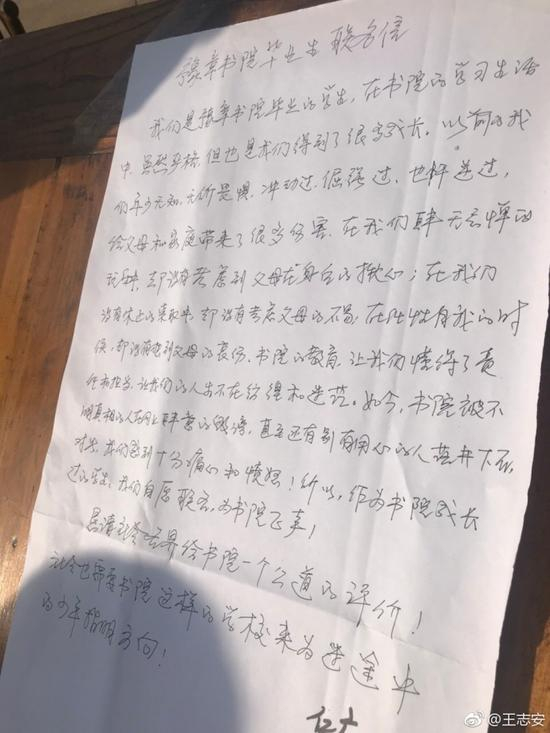 豫章书院毕业生联名信
我们是豫章书院毕业的学生，在书院的学习生活
中，虽然严格，但也是我们得到了很多成长。以前的我
们年少无知，无所畏惧，冲动过，倔强过，也忤逆过，
给父母和家庭带来了很多伤害，在我们肆无忌惮的
玩耍时，却没有考虑到父母在身后的揪心；在我们
没有休止的索取时，却没有考虑父母的不易，在任性自我的时
候，却没有想到父母的哀伤。书院的教育，让我们懂得了责
任和担当，让我们的人生不在彷徨和迷茫。如今，书院被不
明真相的人在网上肆意的毁谤，甚至还有别有用心的人落井下石，
对此，我们感到十分痛心和愤怒！所以，作为书院成长
过的学生，我们自愿联名，为书院正声！
恳请社会各界给书院一个公道的评价！
社会也需要书院这样的学校来为迷途中
的少年指明方向！
@王志安